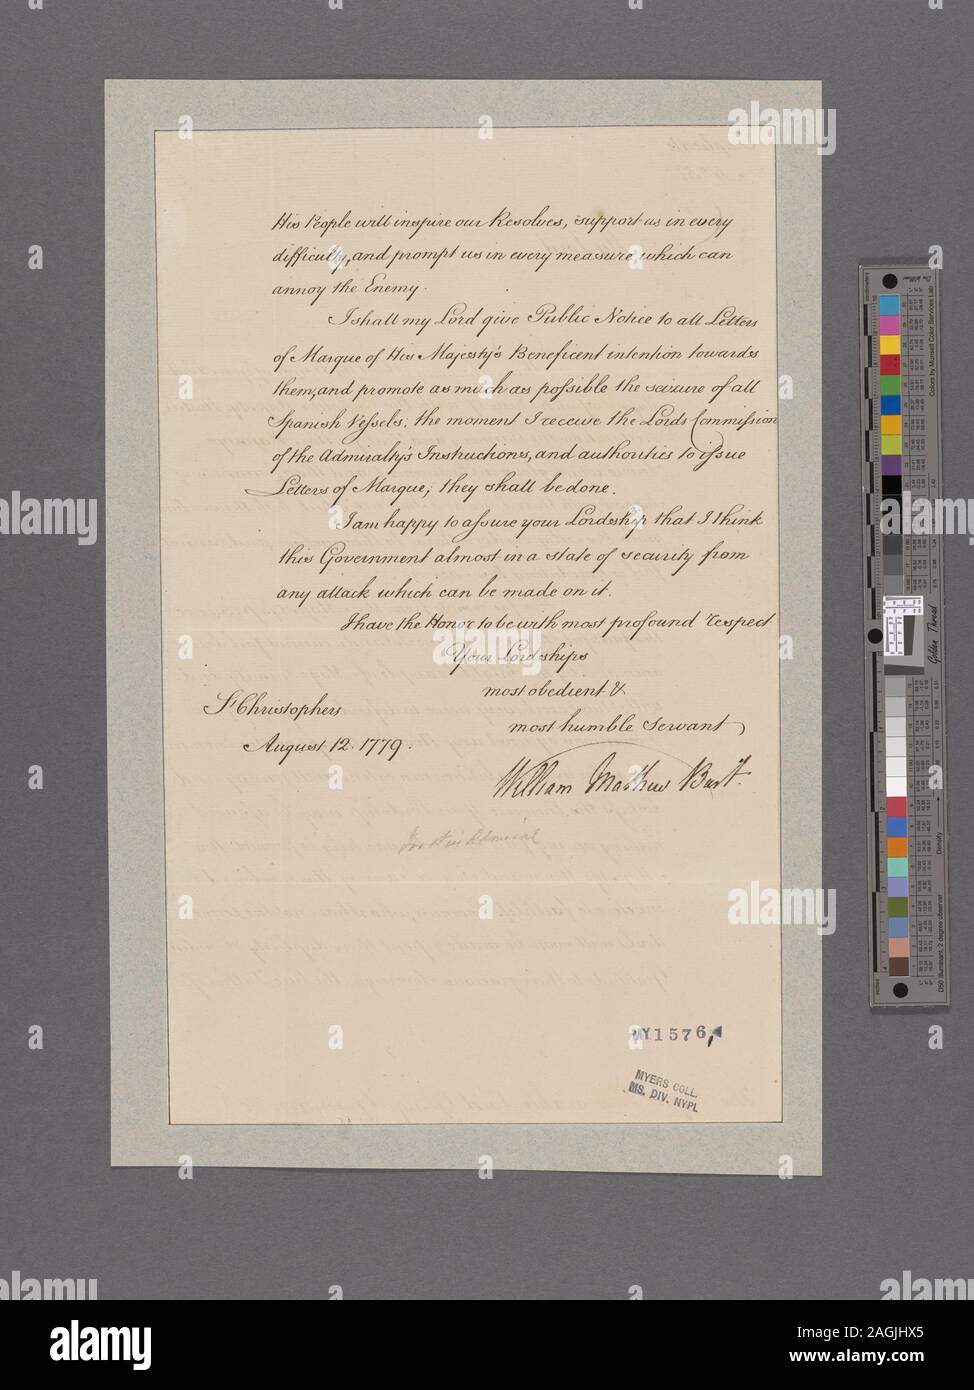 His People will inspire our Resolves, support us in every
difficulty, and prompt us in every measure which can
annoy the Enemy.
I shall my Lord give Public Notice to all Letters
of Marque of His Majesty's Beneficent intention towards
them, and promote as much as possible the seizure of all
Spanish Vessels; the moment I receive the Lords Commission
of the Admiralty's Instructions, and authorities to issue
Letters of Marque; they shall be done.
I am happy to assure your Lordship that I think
this Government almost in a state of security from
any attack which can be made on it.
I have the Honor to be with most profound respect
Your Lordships
most obedient &
most humble Servant
St Christophers
August 12. 1779.
William Mathew Burt
MY1576
MYERS COLL.
MS. DIV. NYPL
Golden Thread
Colors by Munsell Color Services Lab
D50 Illuminant, 2 degree observer
Density
alamy
Image ID: 2AGJHX5
www.alamy.com